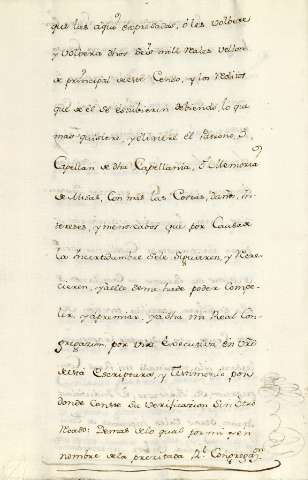 que las aqui expresadas, ô les volvere
y volvera dhos dos mill Reales vellon
de principal deeste Censo, y los reditos
que de el se estubieren debiendo, lo que
mas quisiere, y eligiere el Patrono, y
Capellan de dha Capellania, ô Memoria
de Misas, con mas las Costas, daños, in-
tereses, y menoscabos que por Causa de
la incertidumbre sele siguieren, y Recre-
cieren, y a ello se me ha de poder Compe-
ler, y apremiar, y a dha mi Real Con-
gregazion, por via Executiva, en vrd
de esta Escriptura, y Testimonio por
donde Conste su Verificazion sin otro
Recado: Demas de lo qual por mi y en
nombre de la precitada Rl. Congregazn.